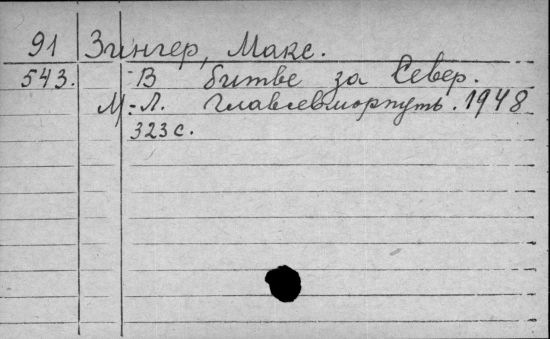 91 Зингер, Макс.
543. В битве за Север.
М.-Л. Главсевморпуть. 1948
323 с.